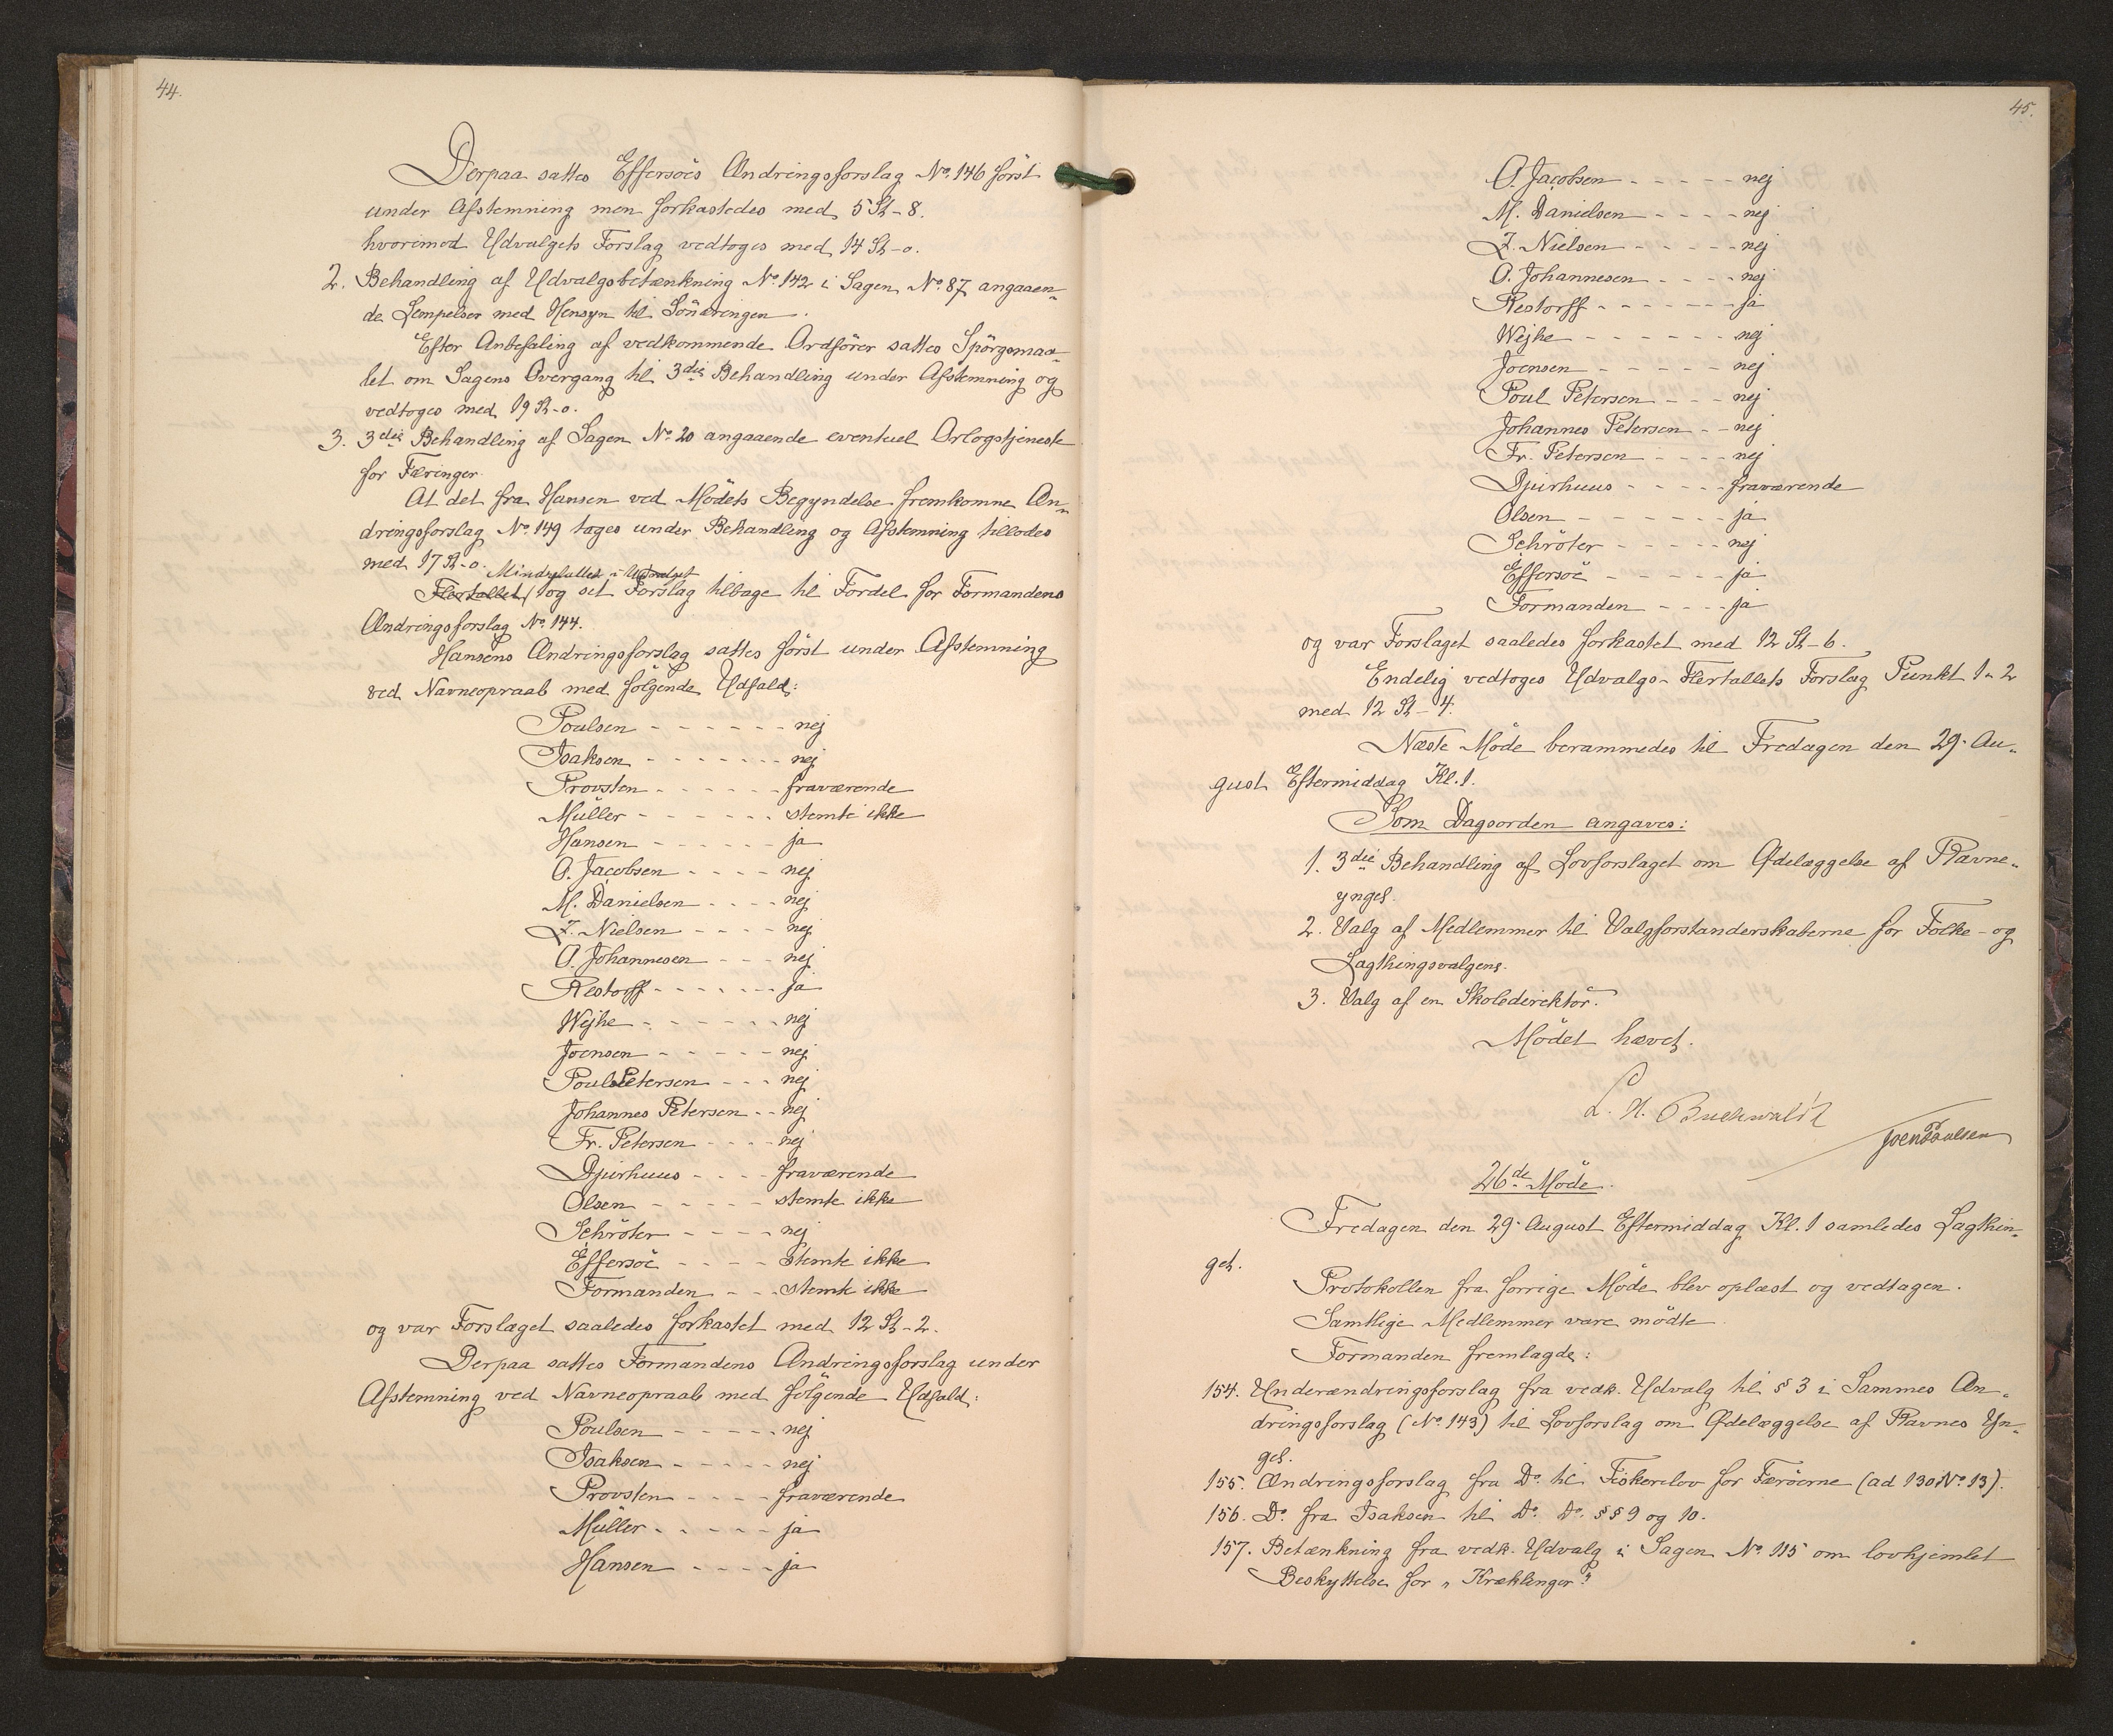 44.
Derpaa sattes Effersøes Ændringsforslag No. 146 först
under Afstemning men forkastedes med 5 St - 8.
hvorimod Udvalgets Forslag vedtoges med 14 St - 0.
2. Behandling af Udvalgsbetænkning No. 142 i Sagen No. 87 angaaen-
de Lempelser med Hensyn til
Efter Anbefaling af vedkommende Ordförer sattes Spörgsmaa-
let om Sagens Overgang til 3die Behandling under Afstemning og
vedtoges med 19 St - 0.
3. 3die Behandling af Sagen No. 20 angaaende eventuel Orlogstjeneste
for Færinger.
At det fra Hansen ved Mödets Begyndelse fremkomne Æn-
dringsforslag No. 149 toges under Behandling og Afstemning tillodes
med 17 St - 0.
Mindretallet i Udvalget
Flertallet tog sit Forslag tilbage til Fordel for Formandens
Ændringsforslag No. 144.
Hansens Ændringsforslag sattes först under Afstemning
ved Navneopraab med fölgende Udfald:
Poulsen - - - - - - nej
Isaksen - - - - - - - nej
Provsten - - - - - - fraværende
Müller - - - - - - stemte ikke
Hansen - - - - - - ja
O. Jacobsen - - - - nej
M. Danielsen - - - - nej
Z. Nielsen - - - - nej
O. Johannesen - - - nej
Restorff - - - - - - ja
Wejhe - - - - - - nej
Joensen - - - - - nej
Poul Petersen - - - nej
Johannes Petersen - - nej
Fr. Petersen - - - - nej
Djurhuus - - - - fraværende
Olsen - - - - - stemte ikke
Schröter - - - - nej
Effersöe - - - - stemte ikke
Formanden - - - stemte ikke
og var Forslaget saaledes forkastet med 12 St - 2.
Derpaa sattes Formandens Ændringsforslag under
Afstemning ved Navneopraab med fölgende Udfald:
Poulsen - - - - - nej
Isaksen - - - - - nej
Provsten - - - - fraværende
Müller - - - - - ja
Hansen - - - - ja
45.
O. Jacobsen - - - - - nej
M. Danielsen - - - - nej
Z. Nielsen - - - - - nej
O. Johannesen - - - - nej
Restorff - - - - - - - ja
Wejhe - - - - - - nej
Joensen - - - - - nej
Poul Petersen - - - nej
Johannes Petersen - - nej
Fr. Petersen - - - - nej
Djurhuus - - - - - fraværende
Olsen - - - - - - - ja
Schröter - - - - - nej
Effersöe - - - - - ja
Formanden - - - - ja
og var Forslaget saaledes forkastet med 12 St - 6.
Endelig vedtoges Udvalgs-Flertallets Forslag Punkt 1 - 2
med 12 St - 4.
Næste Möde berammedes til Fredagen den 29. Au-
gust Eftermiddag Kl. 1.
Som Dagsorden angaves:
1. 3die Behandling af Lovforslaget om Ødelæggelse af Ravne-
yngel.
2. Valg af Medlemmer til Valgforstanderskaberne for Folke- og
Lagthingsvalgene.
3. Valg af en Skoledirektör.
Mödet hævet.
L. H. Buchwaldt
Joen Poulsen
26de Möde.
Fredagen den 29. August Eftermiddag Kl. 1 samledes Lagthin-
get.
Protokollen fra forrige Möde blev oplæst og vedtagen.
Samtlige Medlemmer vare mödte.
Formanden fremlagde:
154. Underændringsforslag fra vedk. Udvalg til § 3 i Sammes Æn-
dringsforslag (No. 143) til Lovforslag om Ødelæggelse af Ravnes Yn-
gel.
155. Ændringsforslag fra Do. til Fiskerilov for Færöerne (ad 130 No. 13).
156. Do. fra Isaksen til Do. Do. §§ 9 og 10.
157. Betænkning fra vedk. Udvalg i Sagen No. 115 om lovhjemlet
Beskyttelse for "Kræklinger".